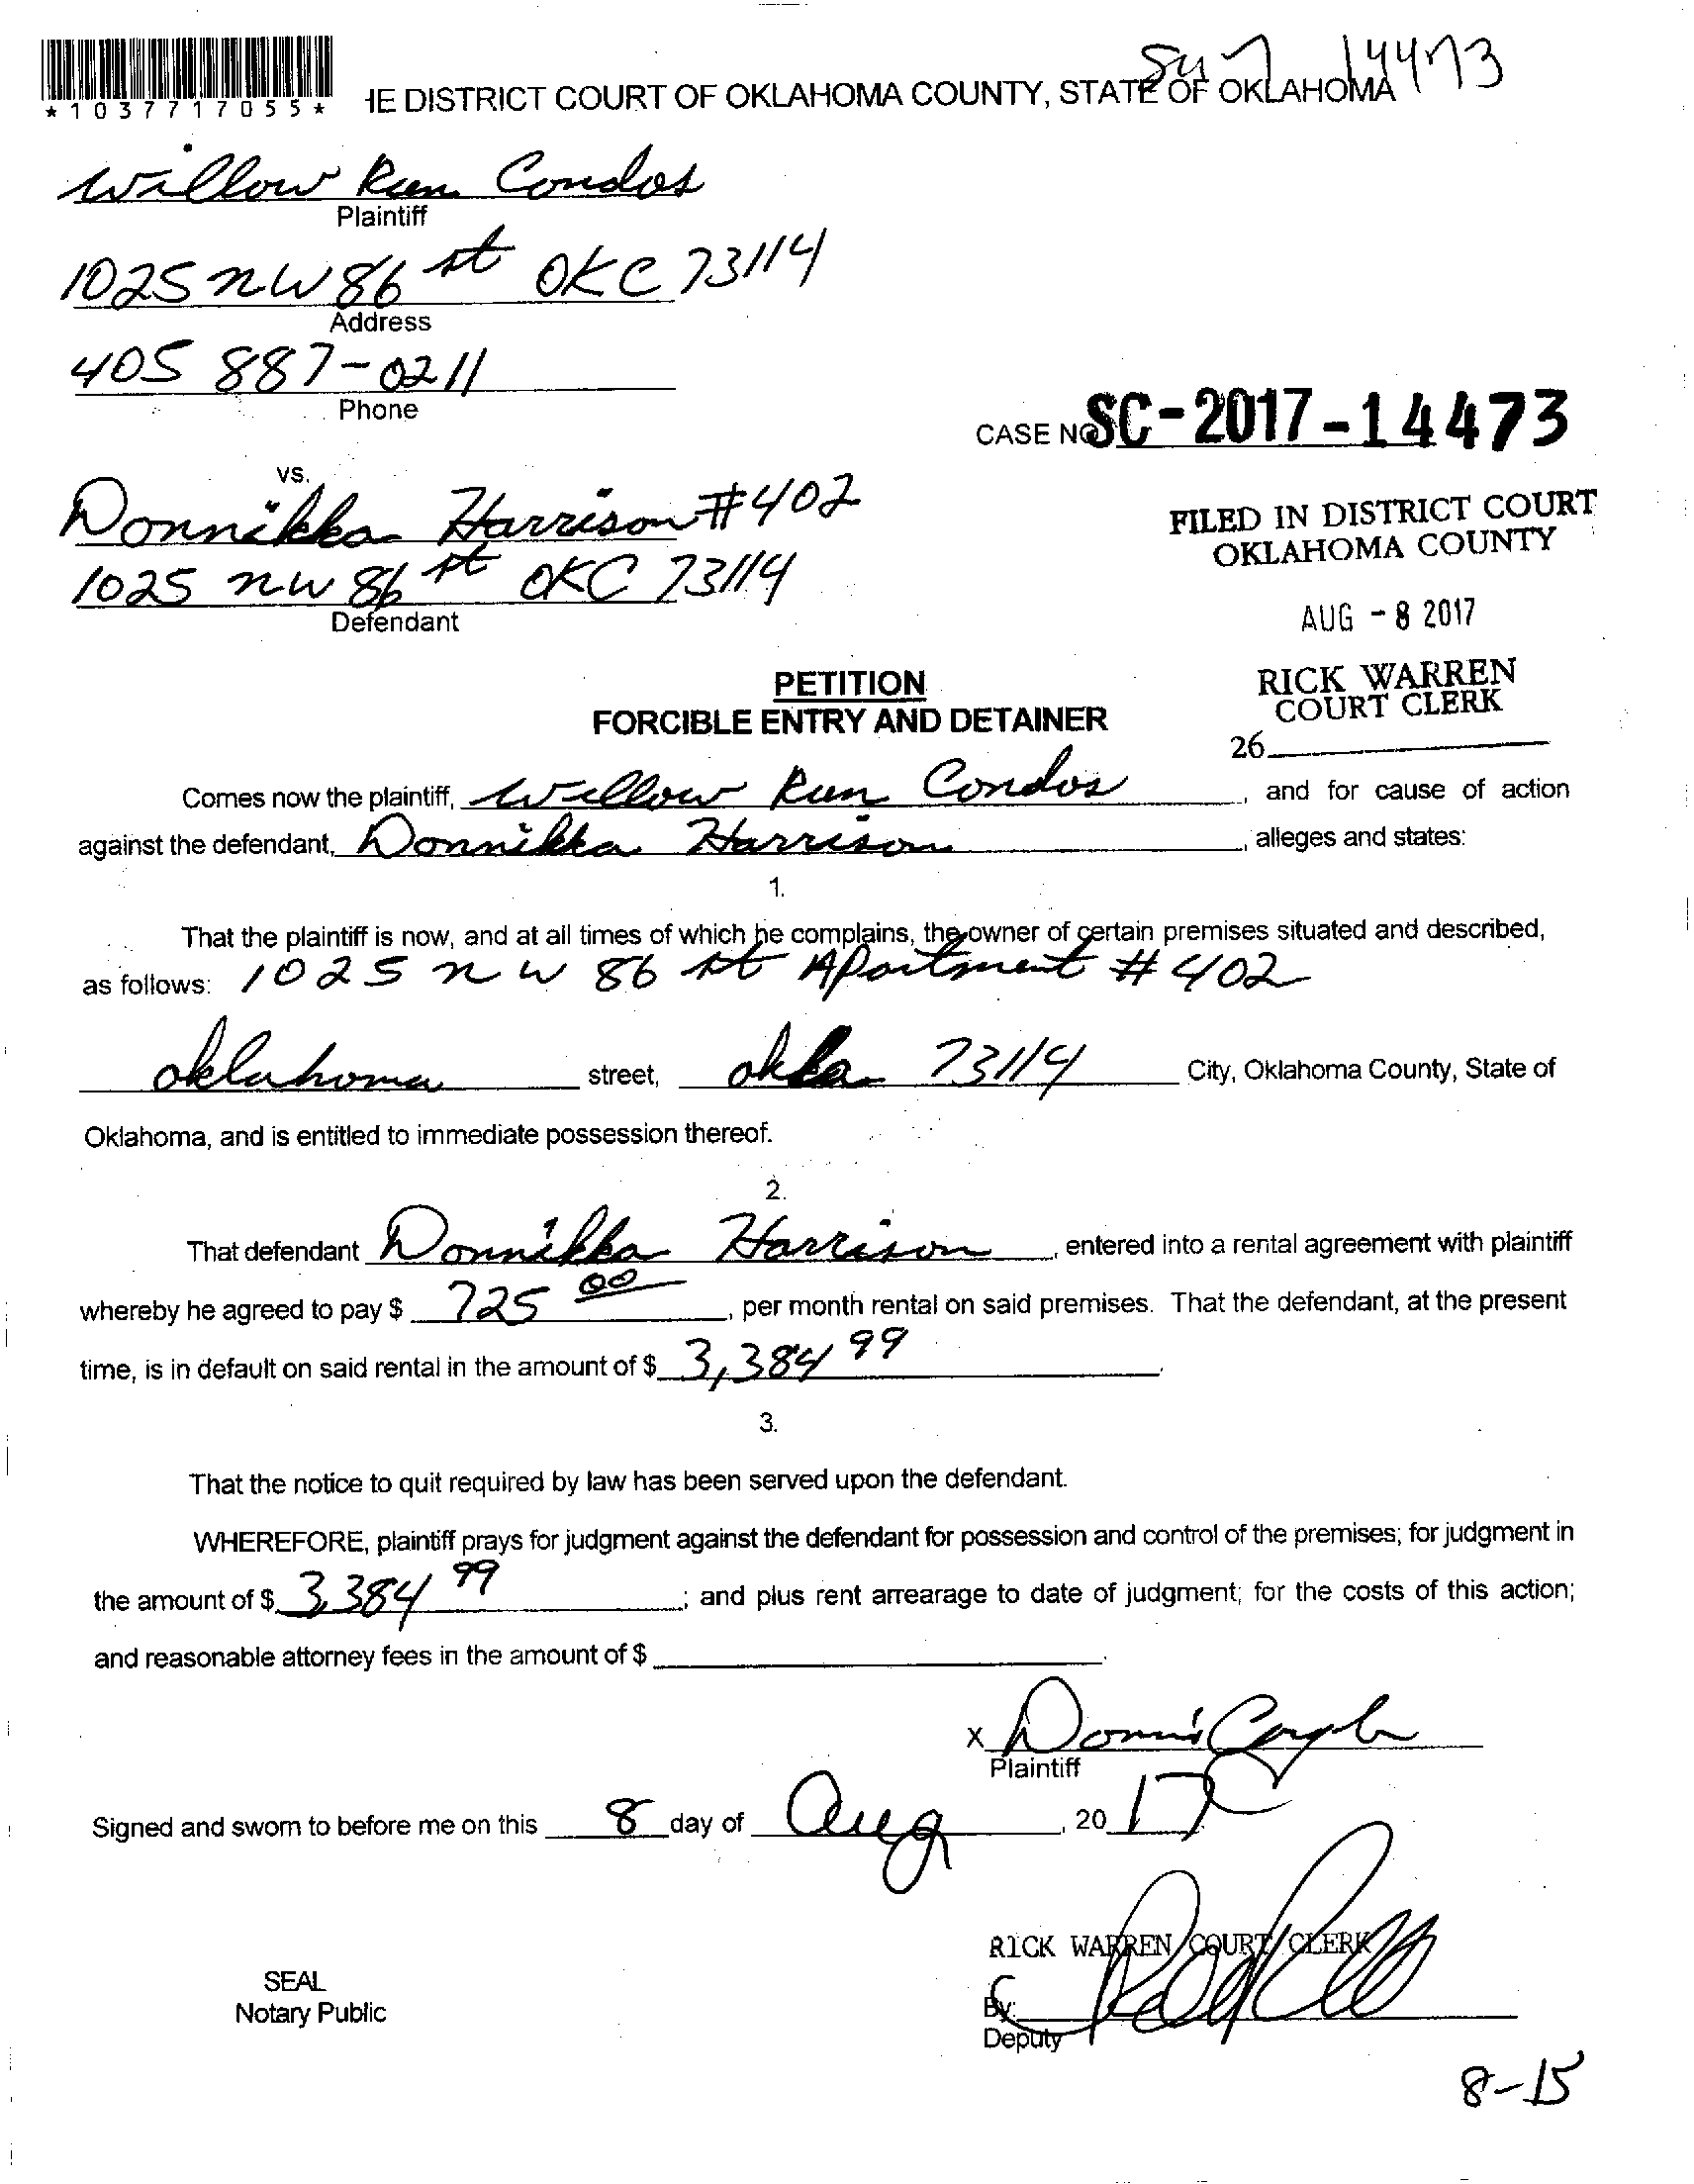 14473
*1037717055*
HE DISTRICT COURT OF OKLAHOMA COUNTY, STATE OF OKLAHOMA
Willow Run Condos
Plaintiff
1025 NW 86 st OKC 73114
Address
405 887-0211
Phone
CASE NO SC-2017-14473
vs.
Donnikka Harrison #402
1025 NW 86 st OKC 73114
Defendant
FILED IN DISTRICT COURT
OKLAHOMA COUNTY
AUG - 8 2017
RICK WARREN
COURT CLERK
26
PETITION
FORCIBLE ENTRY AND DETAINER
Comes now the plaintiff, Willow Run Condos, and for cause of action
against the defendant, Donnikka Harrison, alleges and states:
1.
That the plaintiff is now, and at all times of which he complains, the owner of certain premises situated and described,
as follows: 1025 NW 86 st Apartment #402
oklahoma street, okla 73114 City, Oklahoma County, State of
Oklahoma, and is entitled to immediate possession thereof.
2.
That defendant Donnikka Harrison, entered into a rental agreement with plaintiff
whereby he agreed to pay $ 725 00, per month rental on said premises. That the defendant, at the present
time, is in default on said rental in the amount of $ 3,384 99.
3.
That the notice to quit required by law has been served upon the defendant.
WHEREFORE, plaintiff prays for judgment against the defendant for possession and control of the premises; for judgment in
the amount of $ 3,384 99; and plus rent arrearage to date of judgment; for the costs of this action;
and reasonable attorney fees in the amount of $
X
Plaintiff
Signed and sworn to before me on this 8 day of Aug, 2017
RICK WARREN COURT CLERK
SEAL
Notary Public
By:
Deputy
8-15